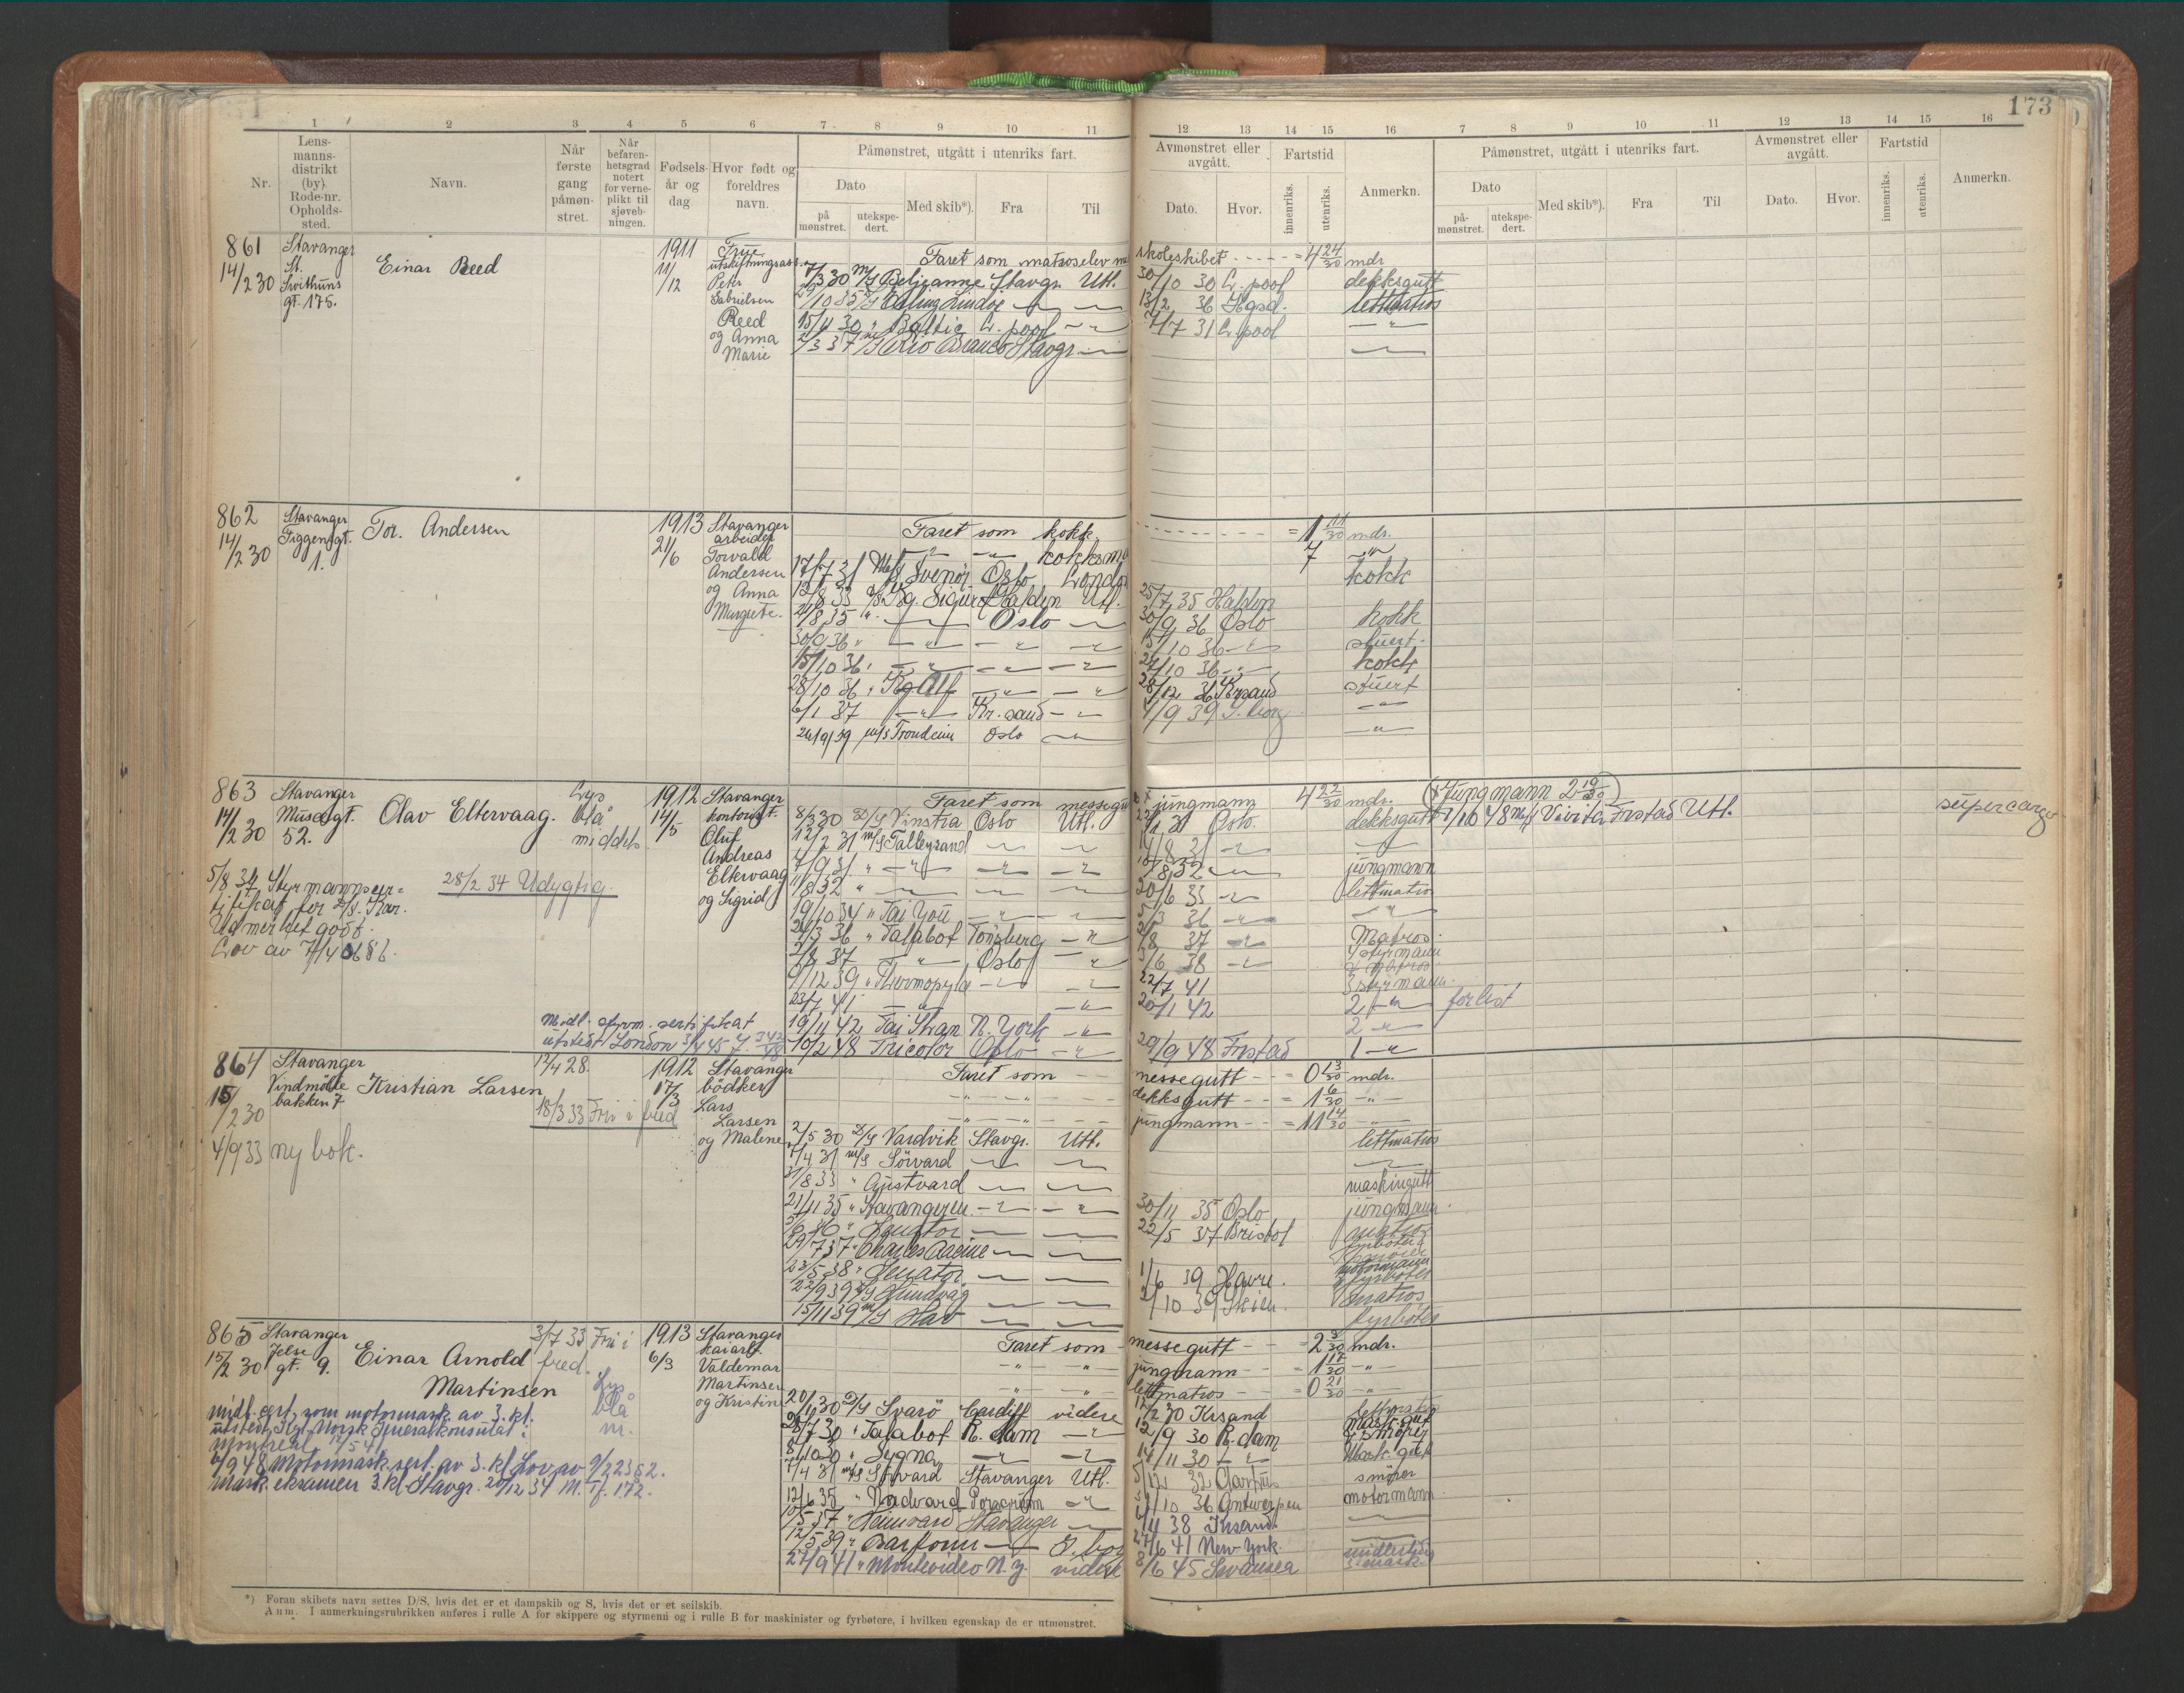 173
1 2 3 4 5 6 7 8 9 10 11 12 13 14 15 16 7 8 9 10 11 12 13 14 15 16
Nr.
Lens-
manns-
distrikt
(by).
Rode-nr.
Opholds-
sted.
Navn.
Når
første
gang
påmøn-
stret.
Når
befaren-
hetsgrad
notert
for verne-
plikt til
sjøveb-
ningen.
Fødsels-
år og
dag
Hvor født og
foreldres
navn.
Påmønstret, utgått i utenriks fart.
Dato
på
mønstret.
utekspe-
dert.
Med skib*).
Fra
Til
Avmønstret eller
avgått.
Dato.
Hvor.
Fartstid
innenriks.
utenriks.
Anmerkn.
Påmønstret, utgått i utenriks fart.
Dato
på-
mønstret.
utekspe-
dert.
Med skib*).
Fra
Til
Avmønstret eller
avgått.
Dato.
Hvor.
Fartstid
innenriks.
utenriks.
Anmerkn.
861
14/2 30
Stavanger
St.
Swithuns
gt. 175.
Einar Reed
1911
11/12
Peter
Gabrielsen
Reed
og Anna
Marie
Faret som matroselev
skoleskibet - - - - = 4 24/30 mdr
7/3 30 M/S Belisanne Stavgr. Utl. 30/10 30 L. pool dekksgutt
13/2 36 lettmatros
15/11 30 " Baltic L. pool - " 7/7 31 L. pool - " -
Rio Branco Stavgr
862
14/2 30
Stavanger
1.
Tor. Andersen
1913
21/6
Stavanger
arbeider
Torvald
Andersen
og Anna
Margrete.
Faret som kokk - - - - = 1 11/30 mdr.
7 - " -
17/7 31 Svenör Oslo kokk
12/8 33 Kg. Sigurd Halden Utl. 25/7 35 Halden
21/8 35 " Oslo 30/9 36 Oslo kokk
30/9 36 " - " - 15/10 36 - " - stuert
15/10 36 " - " - 27/10 36 - " - kokk
28/10 36 " Kg Alf - " - 28/12 36 Krsand stuert
6/1 37 - " - Kr. sand - " - 4/9 39 - " -
26/9/39 m/s Trondheim Oslo - " -
863
14/2 30
Stavanger
Muségt.
52.
Olav Eltervaag.
Lys
blå
middels
1912
14/5
Stavanger
kontorist.
Oluf
Andreas
Eltervaag
og Sigrid
5/8 34 Styrmannscer-
tifikat for
Udmerket godt.
Lov av 7/4 06 86.
28/2 34 Udygtig.
Midl. styrm. sertifikat
utstedt London
Faret som messegutt
jungmann 4 22/30 mdr.
Jungmann 2 19/30
8/3 30 D/S Vinstra Oslo Utl. Oslo. dekksgutt
1/10 48 M/S Vivita Frstad Utl. supercargo
12/2 31 M/S Talleyrand 14/8 31
7/9 31 " - " - 1/8 32 jungmann
11/8 32 " 20/6 33 lettmatros
19/10 34 " Tai You - " - 5/3 36 - " -
21/3 36 " Talabot Tönsberg - " - 2/8 37 Matros.
2/8 37 - " - Oslo " 3/6 38
9/12 39 " Thermopylæ 22/7 41 3 styrmann
23/7 41 20/1 42 2 - " - forlist
19/11 42 Tai Shan N. York - " - 2 - " -
10/2 48 Tricolor Oslo - " - 29/9 48 Frstad 1 - " -
864
15/2 30
4/9 33 ny bok.
Stavanger
Vindmölle
bakken 7
Kristian Larsen
12/4 28.
18/3 33 Fri i fred
1912
17/3
Stavanger
bödker
Lars
Larsen
og Malene
Faret som messegutt - - = 0 13/30 mdr.
- " - - " - dekksgutt - - = 1 6/30 - " -
- " - - " - jungmann - - = 11 14/30 - " -
2/5 30 D/S Vardvik Stavgr. Utl. lettmatros
7/4 31 M/S Sörvard
31/8 33 " Austvard maskingutt
21/11 35 " Stavangeren 30/11 35 Oslo jungmann
22/5 37 Bristol
29/7 37 " Charles Racine
23/5 38 " Senator 1/6 39 Havre.
22/9 39 Hundvåg 2/10 39 Skien. matros
15/11 39 M/S Hav fyrböter
865
15/2 30
Stavanger
Jelse
gt. 9.
Einar Arnold
Martinsen
3/7 33 Fri i
fred.
Lys
blå
m.
1913
6/3
Stavanger
Valdemar
Martinsen
og Kristine
midl. sert. som motormask. av 3. kl.
utstedt Kgl. Norsk Generalkonsulat i
Montreal 12/5 41
6/9 48 Motormask. sert. av 3. kl. Lov av
Mask. eksamen 3. kl. Stavgr. 20/12 34
Faret som - messegutt - - = 2 mdr.
- " - - " - jungmann - - = 1 17/30 - " -
- " - - " - lettmatros - - = 0 21/30 - " -
20/1 30 D/S Svarö Cardiff videre 12/2 30 Krsand lettmatros
28/7 30 " Talabot R. dam - " - 12/9 30 R. dam
8/10 30 " Sygna - " - 14/11 30 Mask. gutt
7/4 31 M/S Sörvard Stavanger Utl. smører
12/6 35 " Nordvard Porsgrunn - " - 36 Antwerpen motormann
Heimvard Stavanger 38 Krsand.
12/5 39 " Barfonn 27/6 41 New York
27/9 41 " Montevideo N. Y. videre 8/6 45 Swansea
*) Foran skibets navn settes D/S, hvis det er et dampskib og S, hvis det er et seilskib.
Anm. I anmerkningsrubrikken anføres i rulle A for skippere og styrmenn og i rulle B for maskinister og fyrbøtere, i hvilken egenskap de er utmønstret.